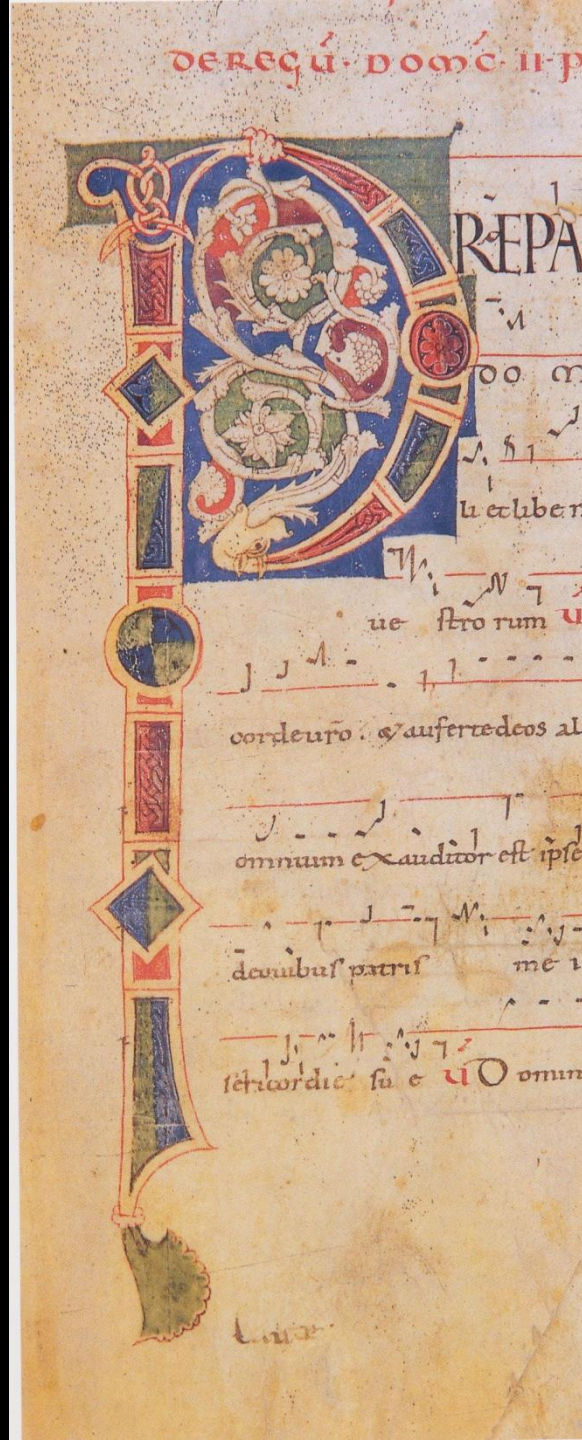 DE REGU̅· DOMC̅· II· P
PRĒPA
DO M
li et liber
ue strorum V
cordeuro̅. & aufertedeos al
omnium exauditor est ipse
deouibus patris me i
sericordie su e V Domin